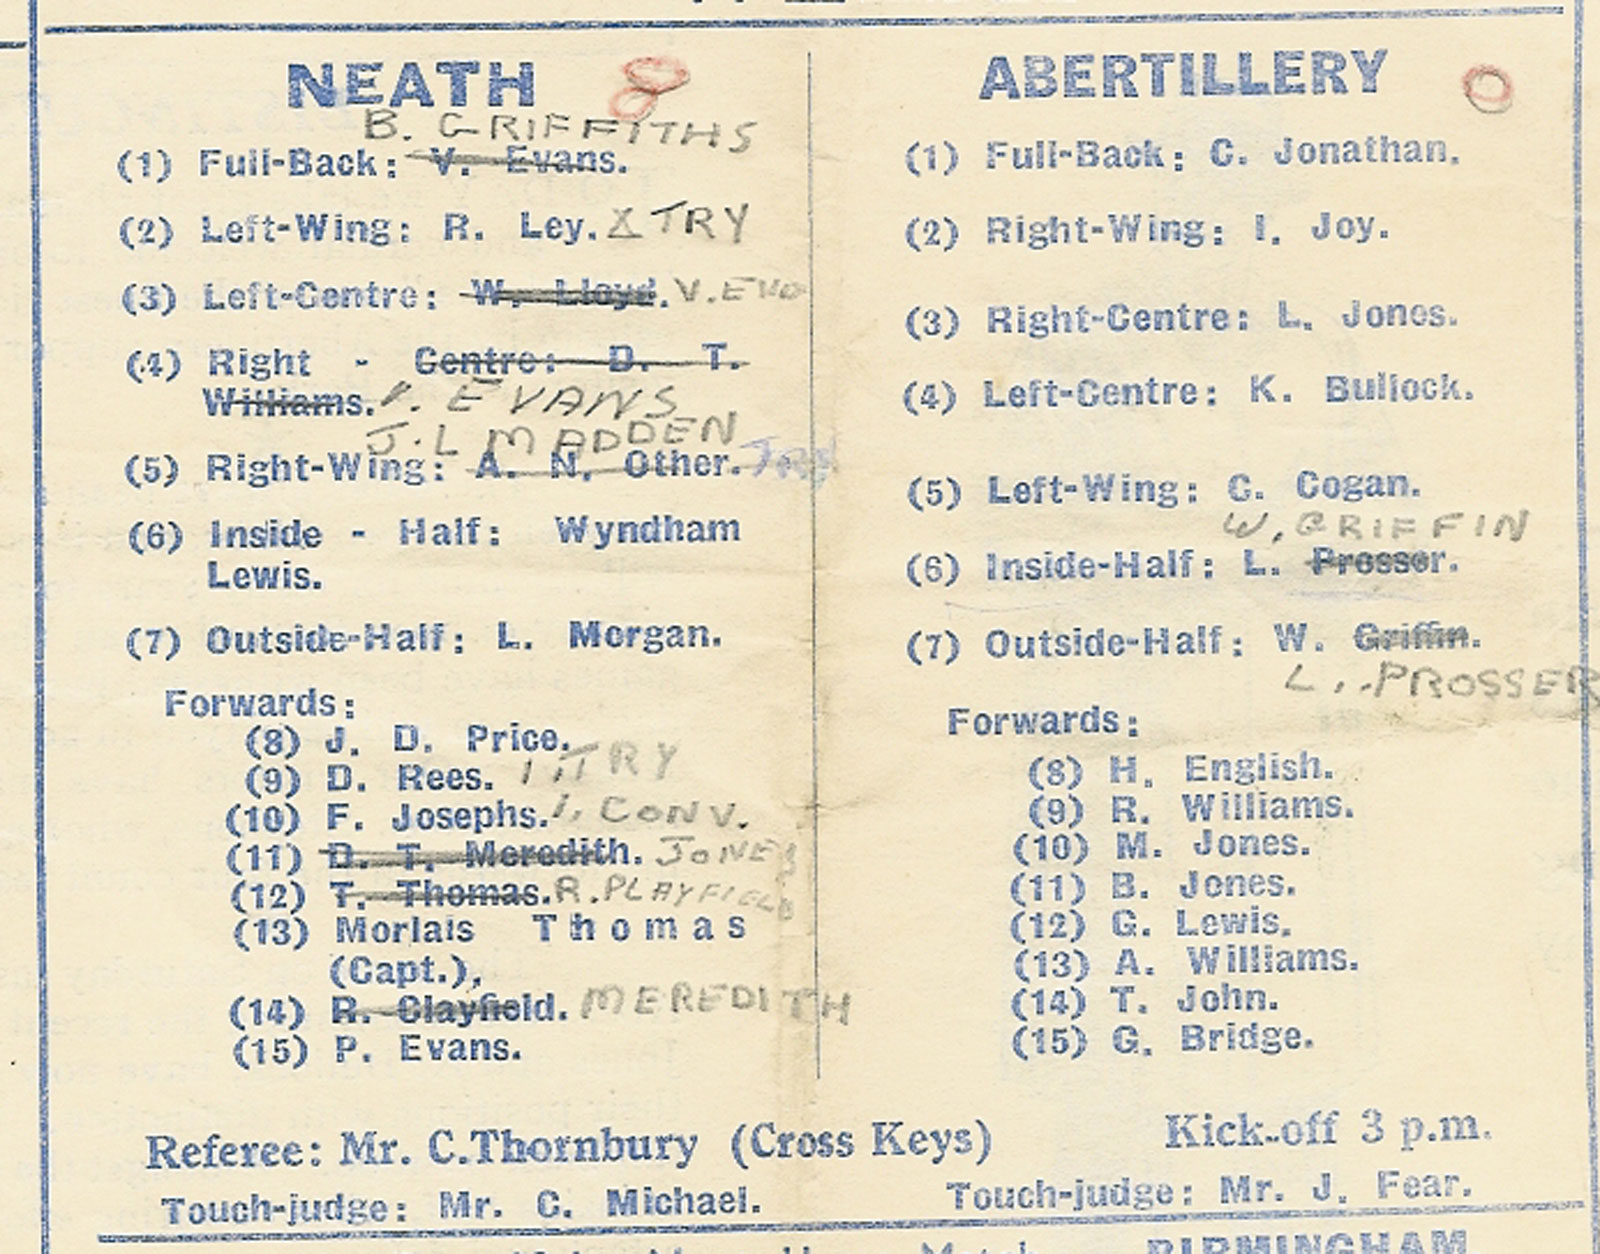 NEATH 8
B. GRIFFITHS
(1) Full-Back: V. Evans.
(2) Left-Wing: R. Ley. X TRY
(3) Left-Centre: W. Lloyd. V. EVA
(4) Right - Centre: D. T.
Williams. V. EVANS
J. L MADDEN
(5) Right-Wing: A. N. Other. TRY
(6) Inside - Half: Wyndham
Lewis.
(7) Outside-Half: L. Morgan.
Forwards:
(8) J. D. Price.
(9) D. Rees. 1. TRY
(10) F. Josephs. 1. CONV.
(11) D. T. Meredith. JONES
(12) T. Thomas. R. PLAYFIELD
(13) Morlais Thomas
(Capt.),
(14) R. Clayfield. MEREDITH
(15) P. Evans.
ABERTILLERY 0
(1) Full-Back: C. Jonathan.
(2) Right-Wing: I. Joy.
(3) Right-Centre: L. Jones.
(4) Left-Centre: K. Bullock.
(5) Left-Wing: C. Cogan.
W. GRIFFIN
(6) Inside-Half: L. Prosser.
(7) Outside-Half: W. Griffin.
L. PROSSER
Forwards:
(8) H. English.
(9) R. Williams.
(10) M. Jones.
(11) B. Jones.
(12) G. Lewis.
(13) A. Williams.
(14) T. John.
(15) G. Bridge.
Referee: Mr. C. Thornbury (Cross Keys) Kick-off 3 p.m.
Touch-judge: Mr. C. Michael. Touch-judge: Mr. J. Fear.
BIRMINGHAM